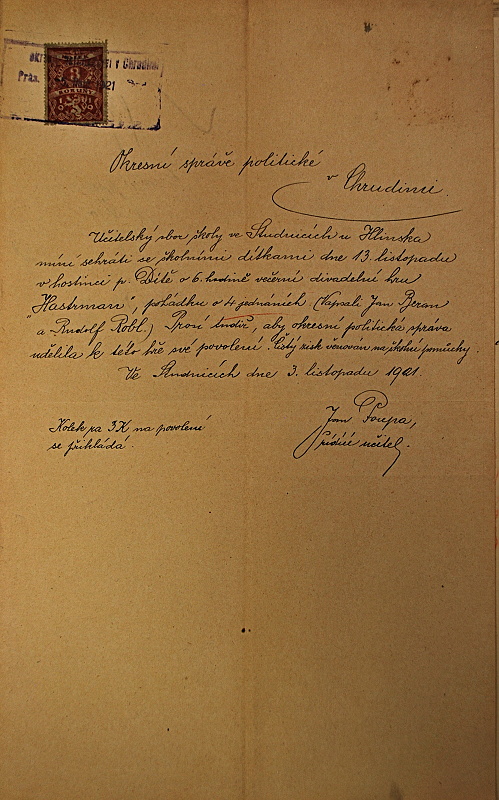 v Chrudimi
8
KORUNY
Okresní správě politické
v Chrudimi.
Učitelský sbor školy ve Studnicích u Hlinska
míní sehráti se školními dítkami dne 13. listopadu
v hostinci p. Dítě o 6. hodině večerní divadelní hru
"Hastrman", pohádku o 4 jednáních. (Napsali Jan Beran
a Rudolf Röbl.) Prosí tudíž, aby okresní politická správa
udělila k této hře své povolení. Čistý zisk věnován na školní pomůcky.
Ve Studnicích dne 3. listopadu 1921.
Kolek za 3K na povolení
se přikládá.
Jan Poupa,
řídící učitel.